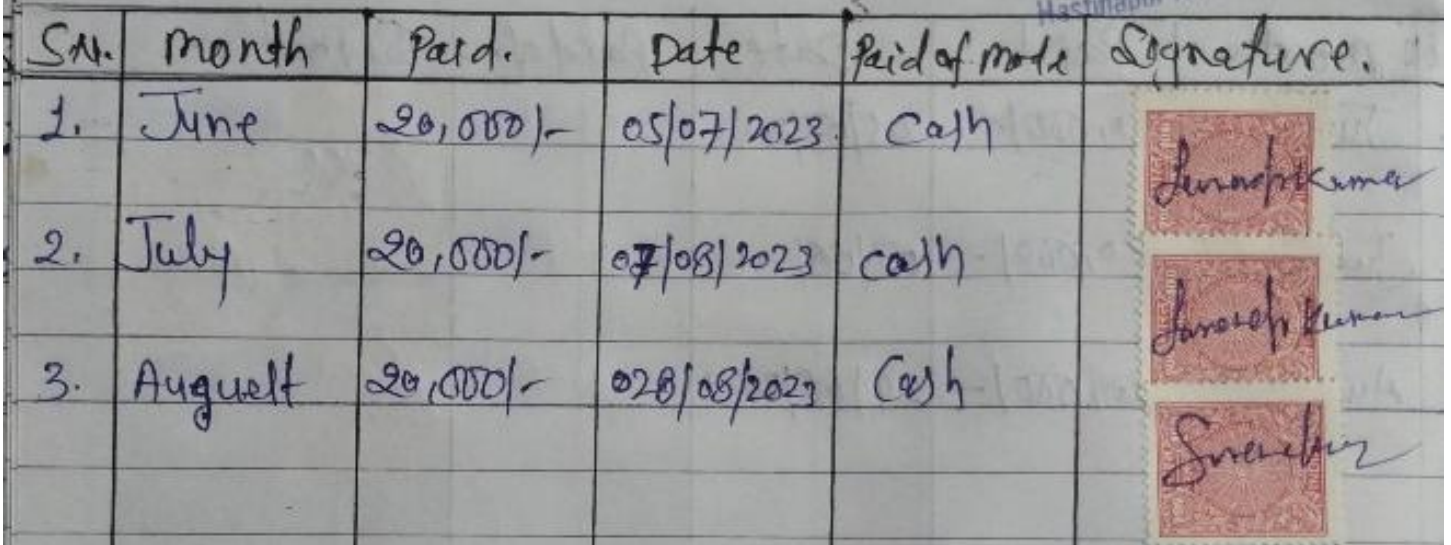 Hastinapur
S.N. month Paid. Date Paid of mode Signature.
1. June 20,000/- 05/07/2023. Cash
2. July 20,000/- 07/08/2023 cash
3. Auguelt 20,000/- 028/08/2023 Cash